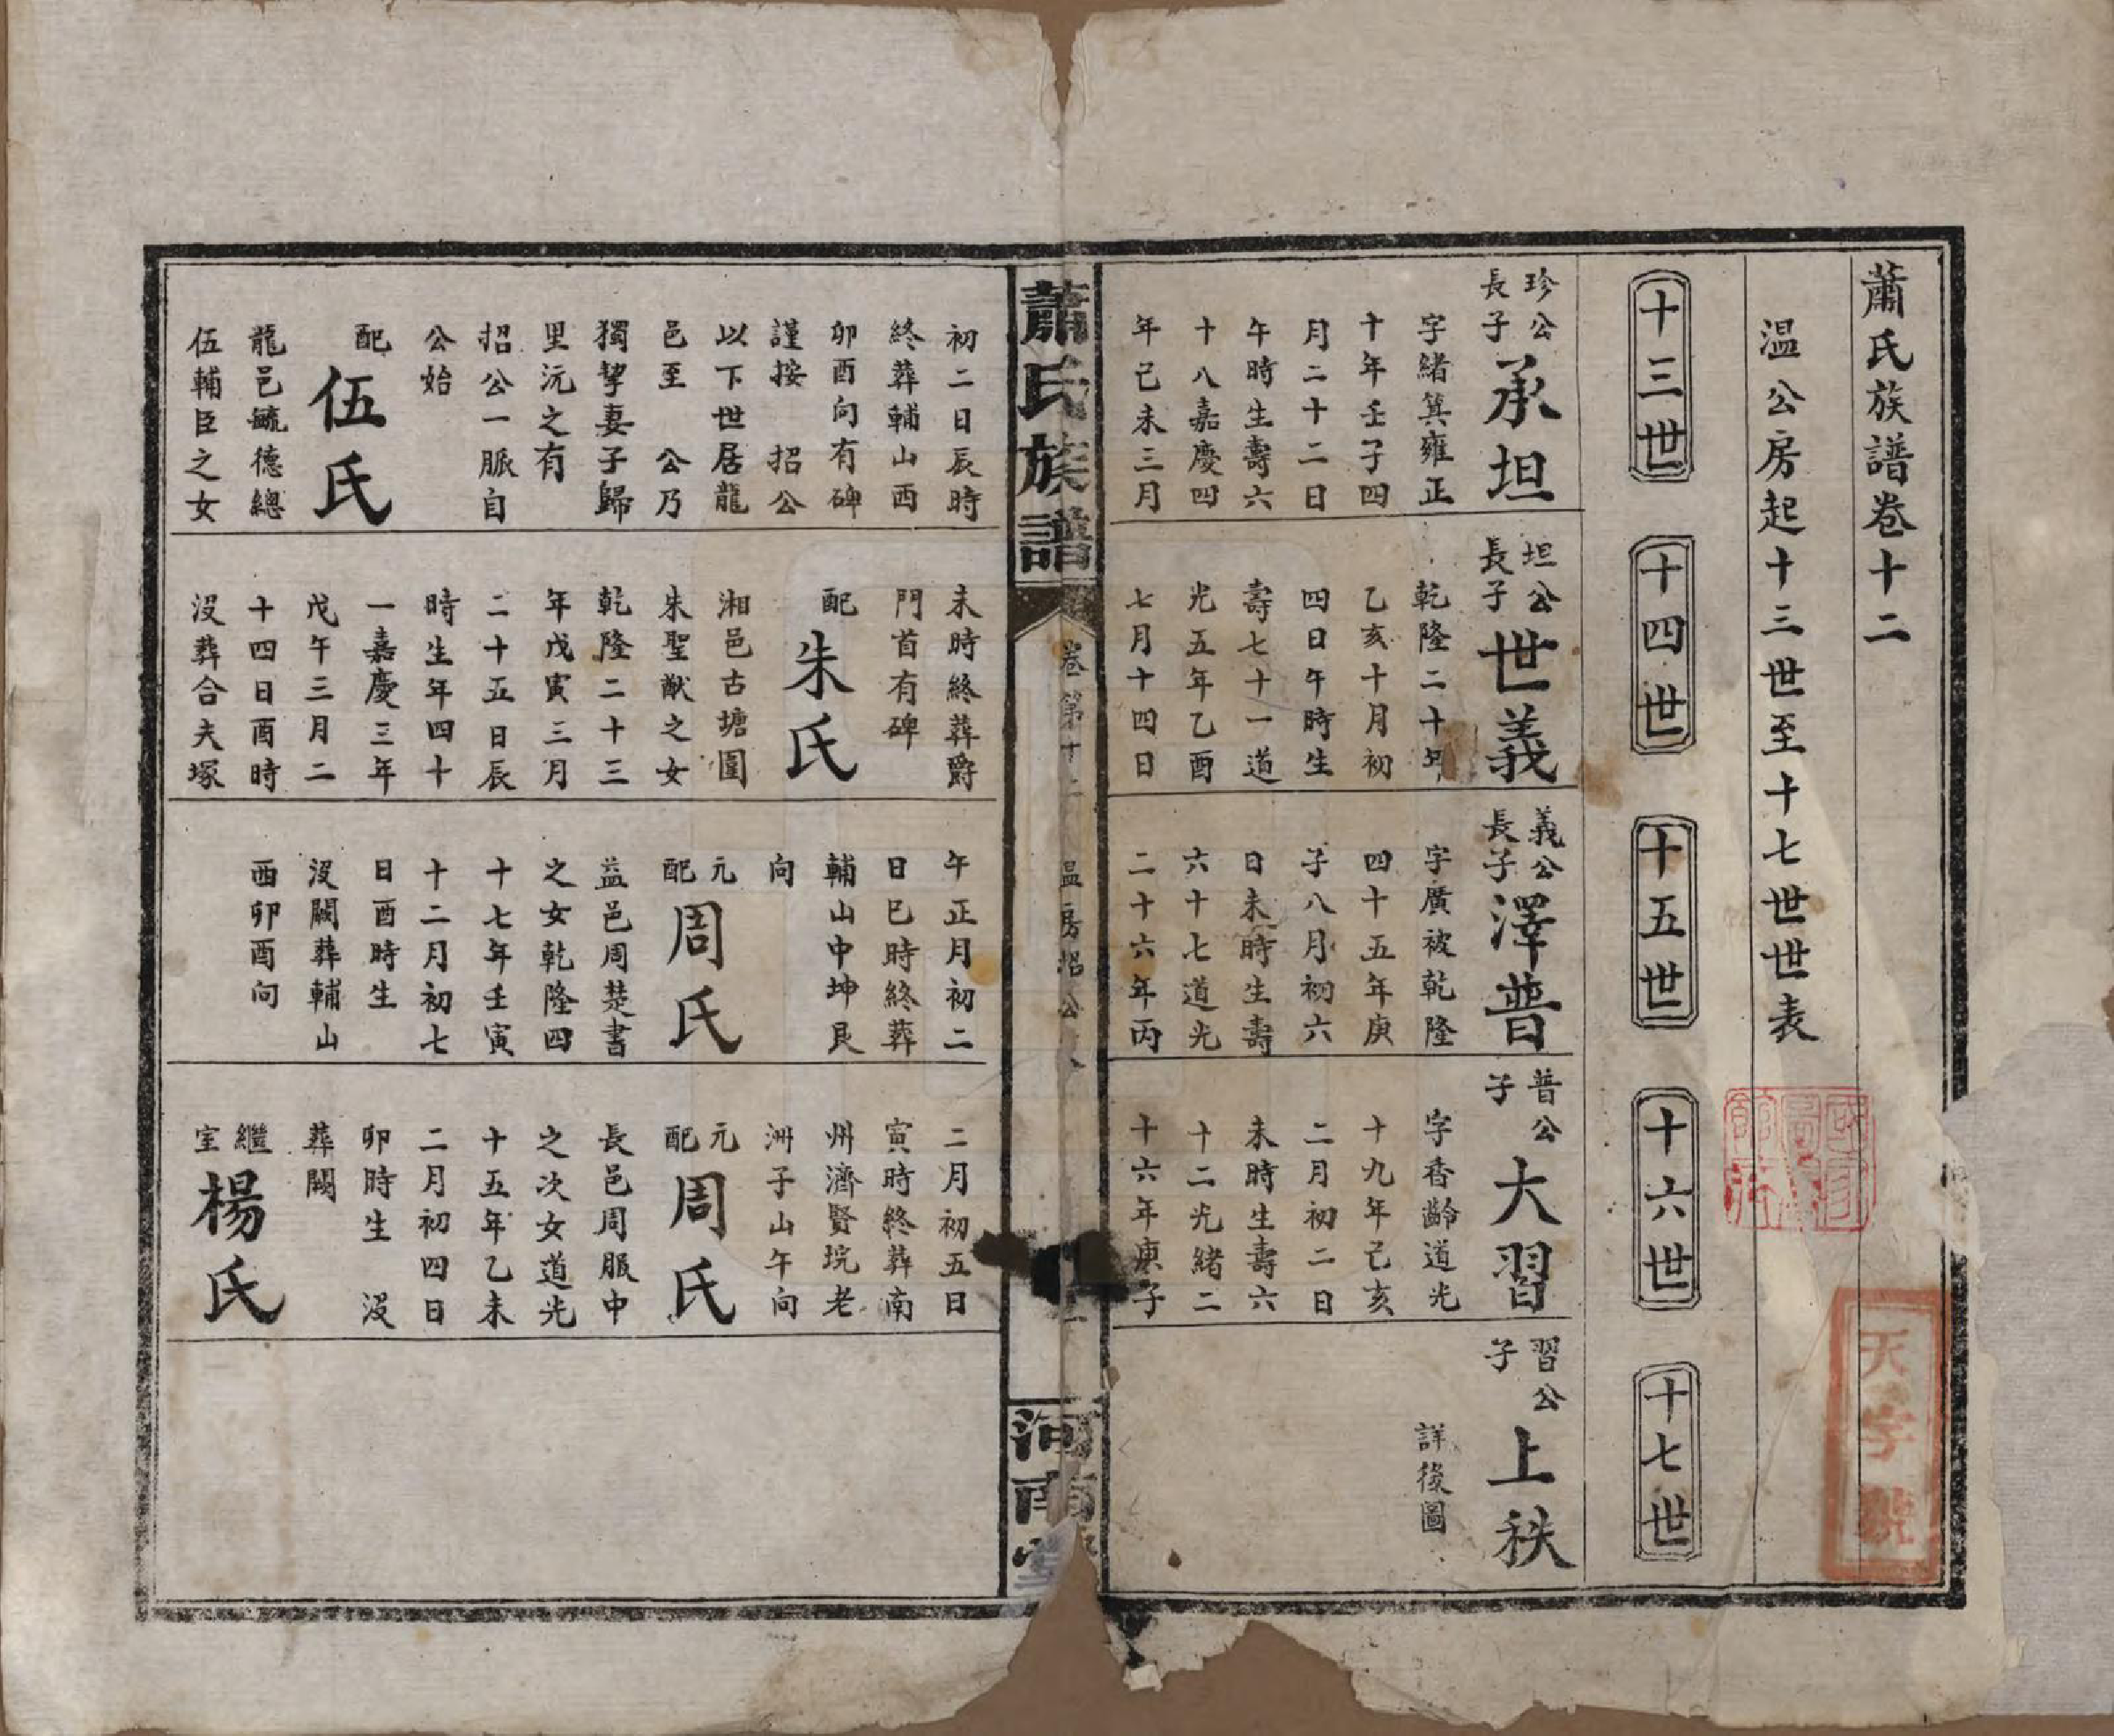 蕭氏族譜卷十二
温公房起十三世至十七世世表
十三世
十四世
十五世
十六世
十七世
珍公
長子
承坦
字緒箕雍正
十年壬子四
月二十二日
午時生壽六
十八嘉慶四
年己未三月
坦公
長子
世義
乾隆二十年
乙亥十月初
四日午時生
壽七十一道
光五年乙酉
七月十四日
義公
長子
澤普
字廣被乾隆
四十五年庚
子八月初六
日未時生壽
六十七道光
二十六年丙
普公
子
大習
字香齡道光
十九年己亥
二月初二日
未時生壽六
十二光緒二
十六年庚子
習公
子
上秩
詳後圖
蕭氏族譜
卷第十二
温房招公
河南堂
初二日辰時
終葬輔山西
卯酉向有碑
謹按 招公
以下世居龍
邑至 公乃
獨挈妻子歸
里沅之有
招公一脈自
公始
配
伍氏
龍邑毓德總
伍輔臣之女
未時終葬爵
門首有碑
配
朱氏
湘邑古塘圍
朱聖猷之女
乾隆二十三
年戊寅三月
二十五日辰
時生年四十
一嘉慶三年
戊午三月二
十四日酉時
沒葬合夫塚
午正月初二
日巳時終葬
輔山中坤艮
向
元配
周氏
益邑周楚書
之女乾隆四
十七年壬寅
十二月初七
日酉時生
沒闕葬輔山
西卯酉向
二月初五日
寅時終葬南
州濟賢垸老
洲子山午向
元配
周氏
長邑周服中
之次女道光
十五年乙未
二月初四日
卯時生 沒
葬闕
繼室
楊氏
天字號